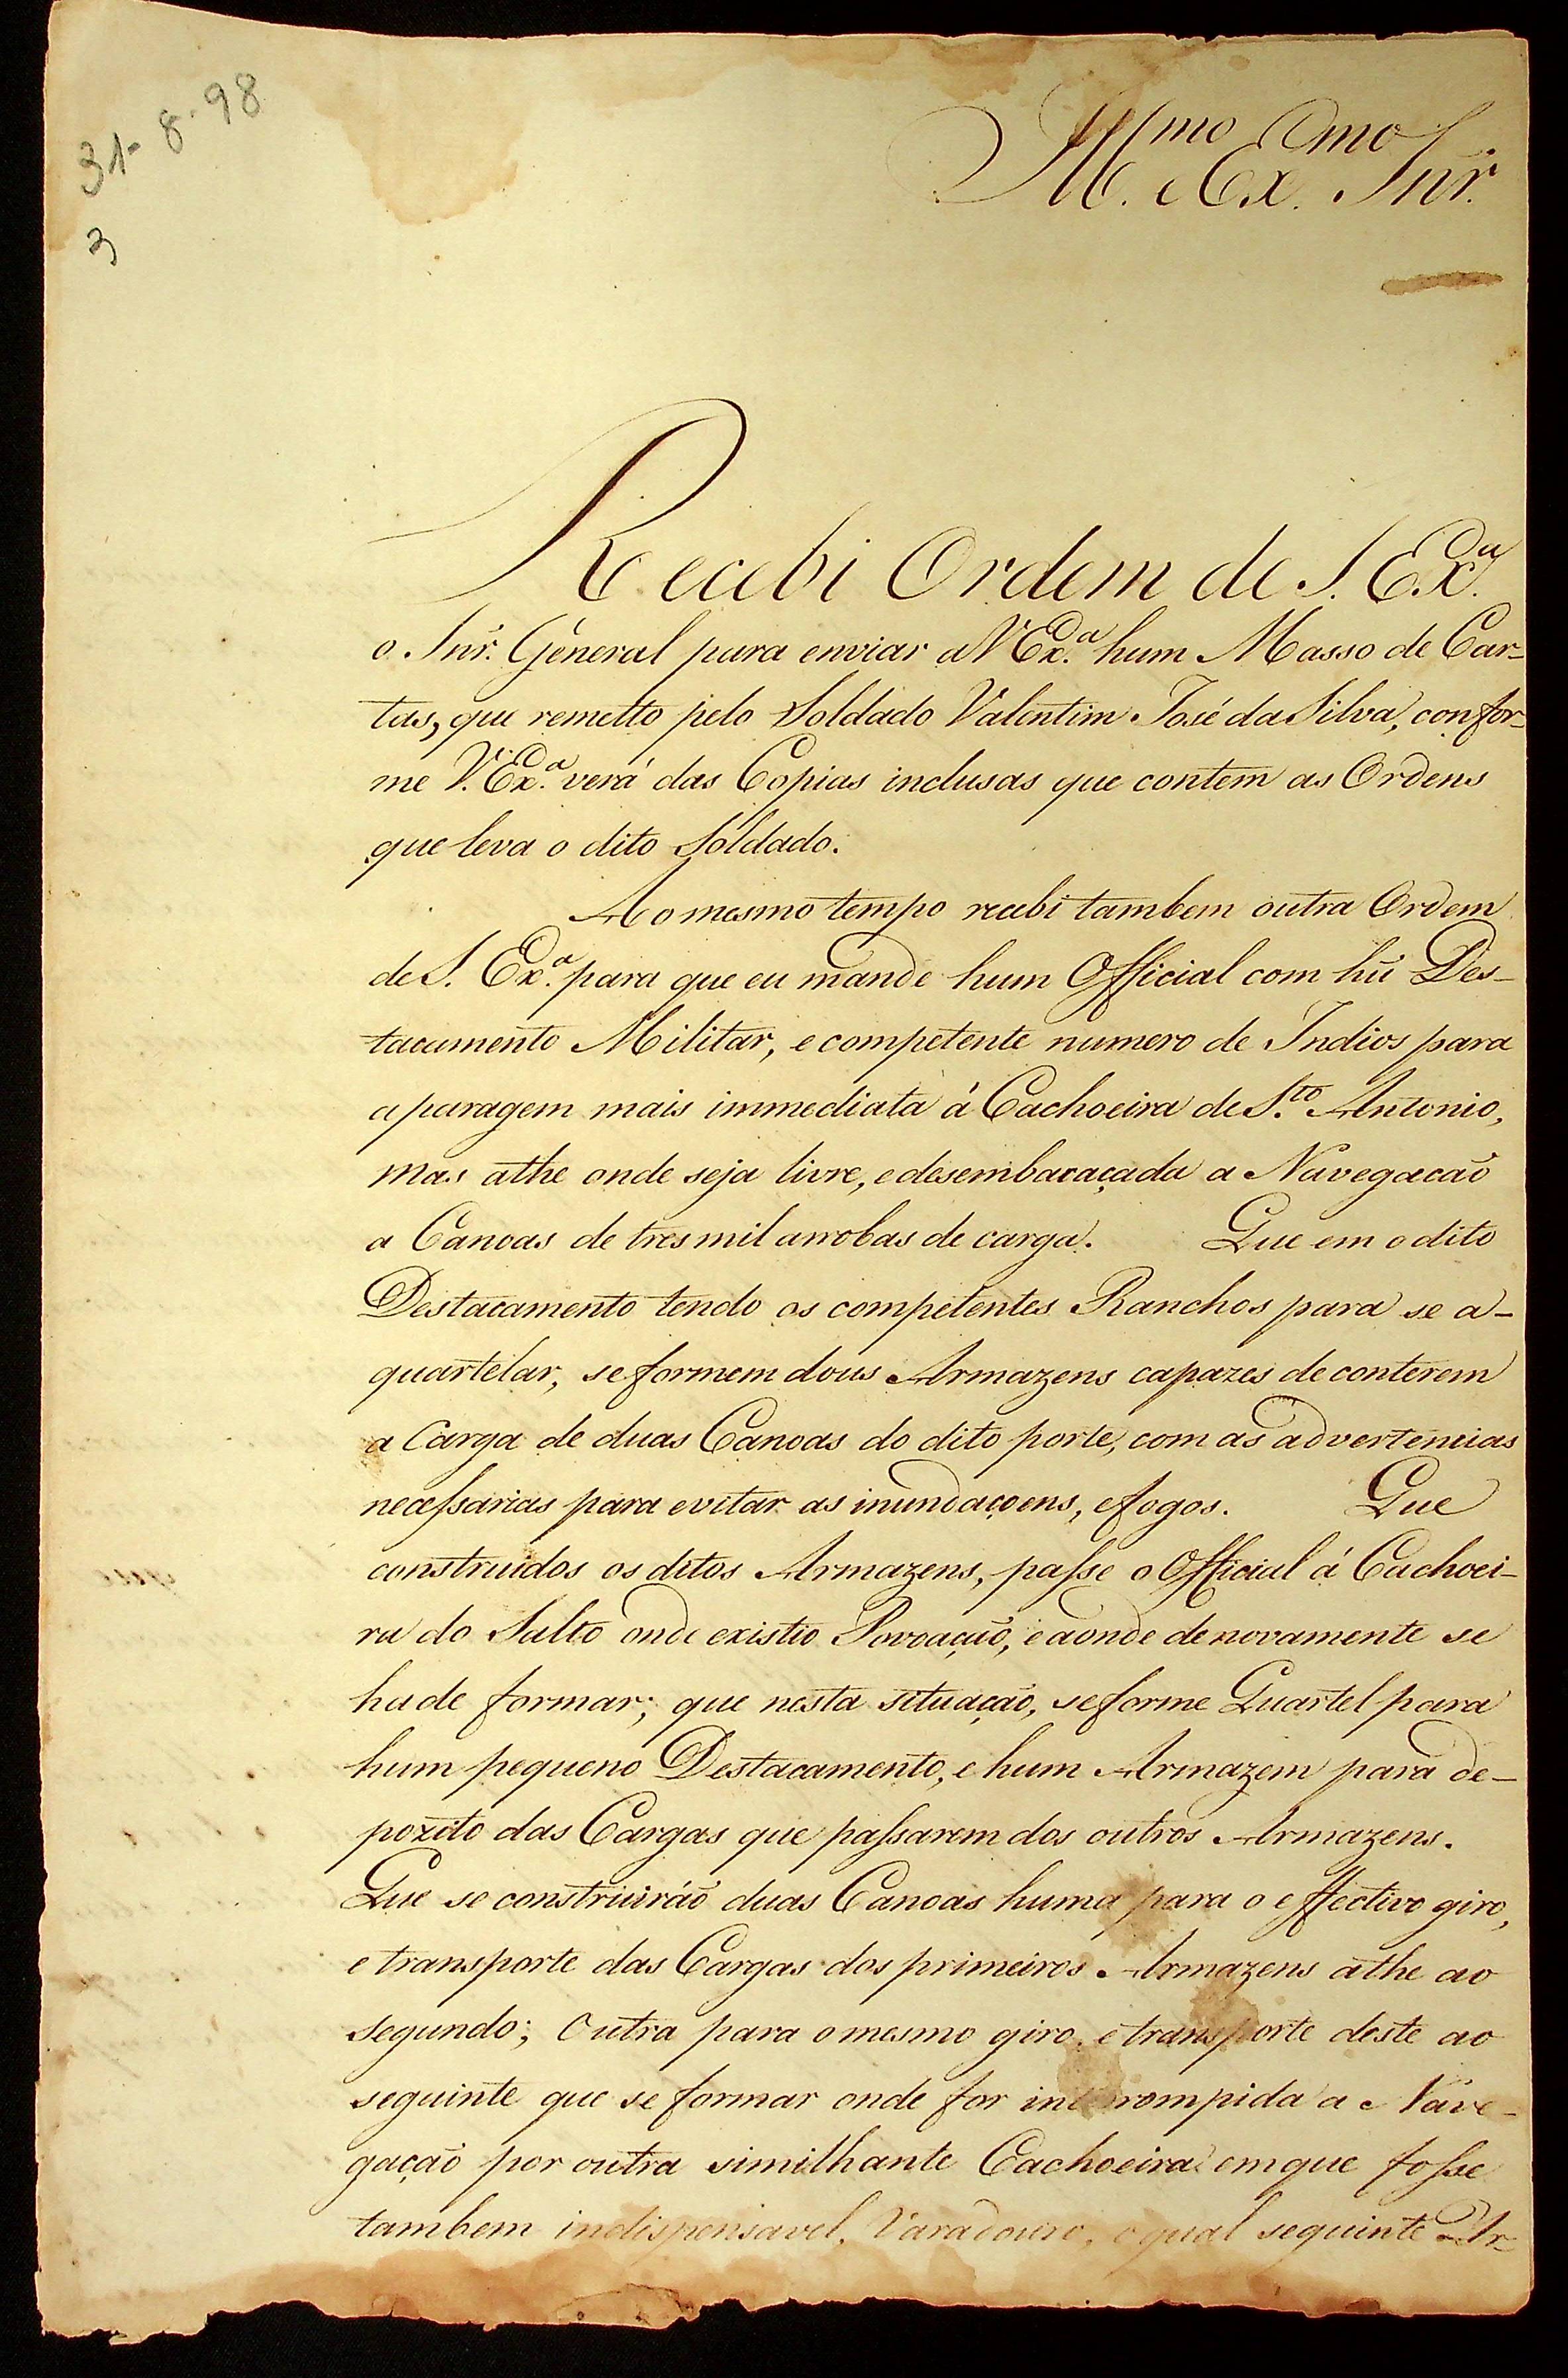 31-8-98
3
Ill.mo Ex.mo Snr.
Recebi Ordem de S. Ex.a
o Snr. General para enviar a V Ex.a hum Masso de Car-
tas, que remetto pelo Soldado Valentim José da Silva, confor-
me V. Ex.a verá das Copias inclusas que contem as Ordens
que leva o dito Soldado.
Ao mesmo tempo recebi tambem outra Ordem
de S. Ex.a para que eu mande hum Official com hũ Des-
tacamento Militar, e competente numero de Indios para
a paragem mais immediata á Cachoeira de S.to Antonio,
mas athe onde seja livre, e desembaraçada a Navegacaõ
a Canoas de tres mil arrobas de carga. Que em o dito
Destacamento tendo os competentes Ranchos para se a-
quartelar, se formem dous Armazens capazes de conterem
a Carga de duas Canoas do dito porte, com as advertencias
neceſsarias para evitar as inundaçoens, e fogos. Que
construidos os ditos Armazens, paſse o Official á Cachoei-
ra do Salto onde existio Povoaçaõ, e aonde de novamente se
ha de formar; que nesta situaçaõ, se forme Quartel para
hum pequeno Destacamento, e hum Armazem para de-
pozito das Cargas que paſsarem dos outros Armazens.
Que se construiráõ duas Canoas huma para o effectivo giro,
e transporte das Cargas dos primeiros Armazens athe ao
segundo; outra para o mesmo giro, e transporte deste ao
seguinte que se formar onde for interrompida a Nave-
gaçaõ por outra similhante Cachoeira em que foſse
tambem indispensavel, Varadouro, o qual seguinte Ar-